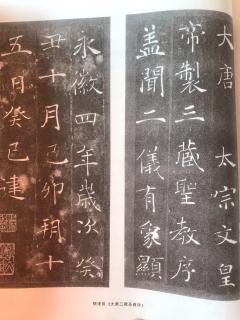 大唐太宗文皇
帝製三藏聖教序
蓋聞二儀有象顯
永徽四年歲次癸
丑十月己卯朔十
五日癸巳建
褚遂良《大唐三藏圣教序》